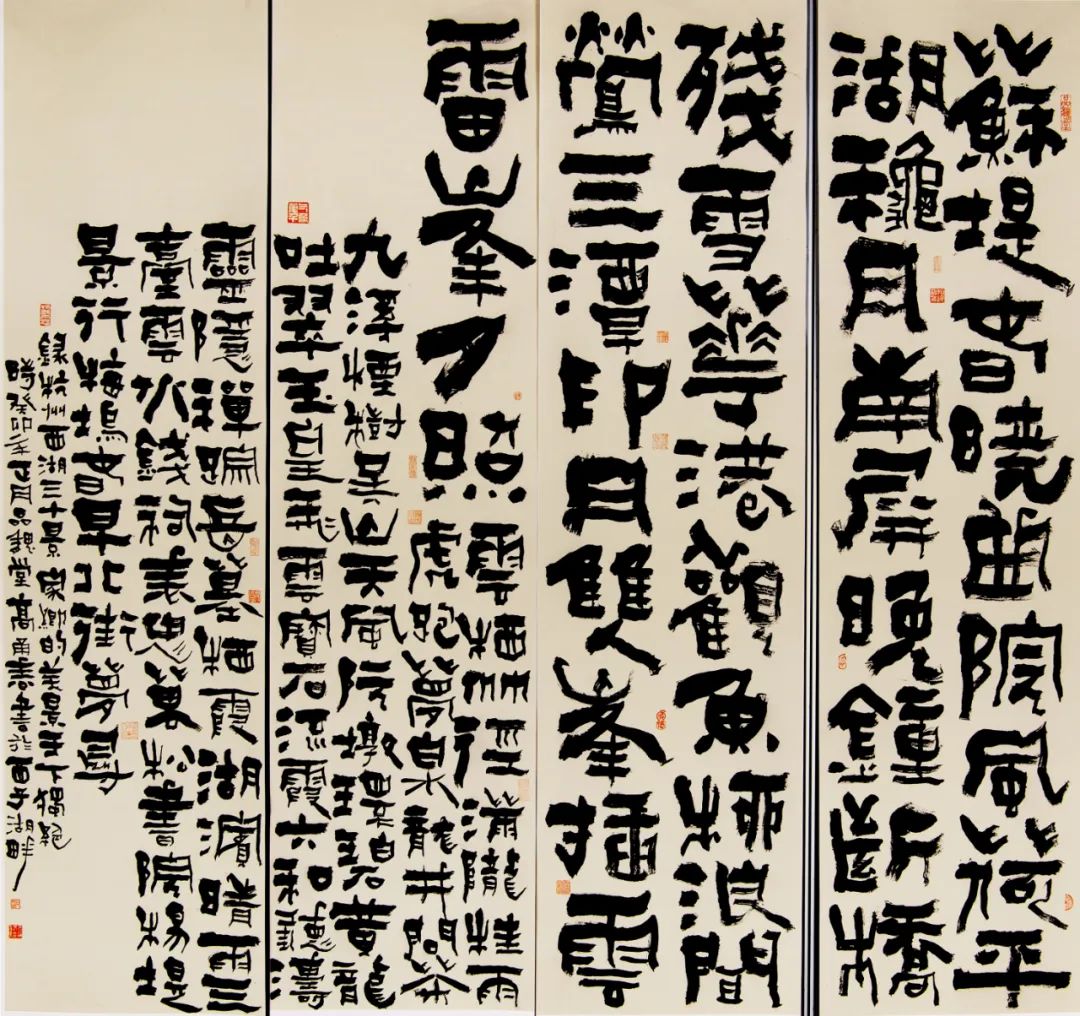 蘇堤春曉曲院風荷平
湖龝月南屏晚鐘斷橋
殘雪華港觀魚柳浪聞
鶯三潭印月雙峯插雲
雷峯夕照
雲栖竹徑滿隴桂雨
虎跑夢泉龍井問茶
九溪煙樹吳山天風阮墩環碧黃龍
吐翠玉皇飛雲寶石流霞六和聽濤
靈隱禪踪岳墓栖霞湖濱晴雨三
臺雲水錢祠表忠萬松書院楊堤
景行梅塢春早北街夢尋
錄杭州西湖三十景家鄉的美景天下獨絕
時癸卯年正月品魏堂高甬書於西子湖畔